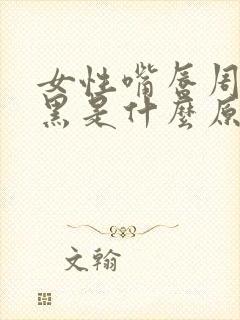 女性嘴唇周
黑是什麼原
文翰